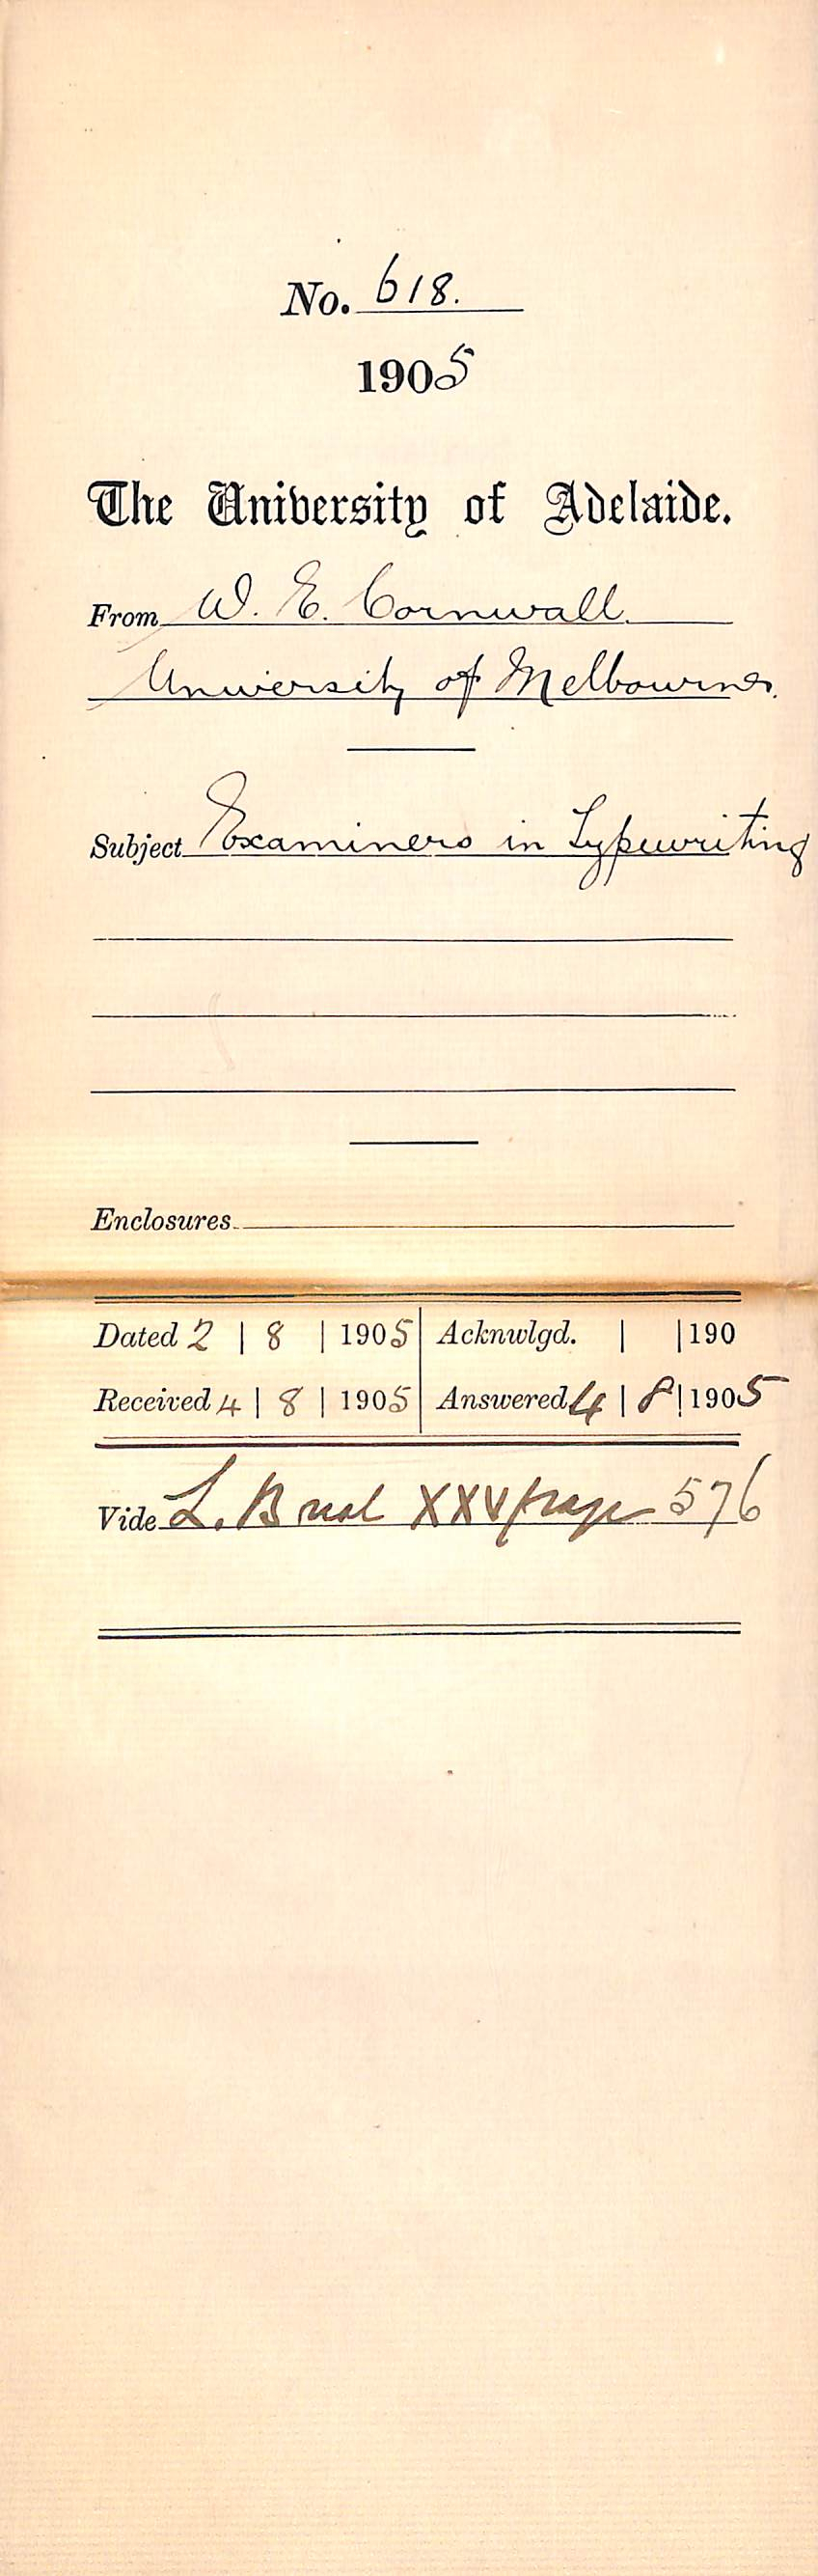 No. 618.
1905
The University of Adelaide.
From W. E. Cornwall.
University of Melbourne.
Subject Examiners in Typewriting
Enclosures
Dated 2 | 8 | 1905 | Acknwlgd. | | 190
Received 4 | 8 | 1905 | Answered 4 | 8 | 1905
Vide L. B vol XXV page 576